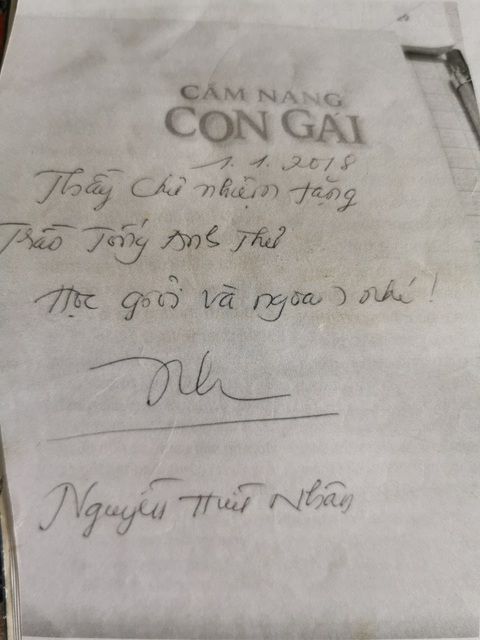 CẨM NANG
CON GÁI
1.1.2018
Thầy Chủ nhiệm tặng
Tống Anh Thư
Học giỏi và ngoan nhé!
Nguyễn Hữu Nhân